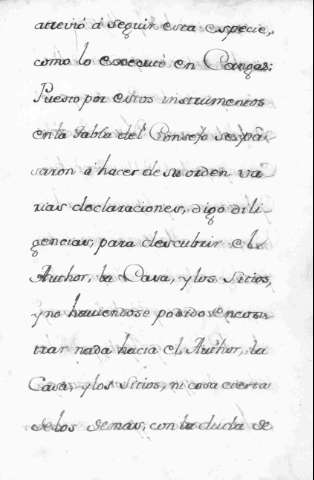 atrevió á seguir esta especie,
como lo executó en Cangas;
Puesto por estos instrumentos
en la tabla del Consejo se spa
saron á hacer de su orden va
rias declaraciones, digo dili
gencias, para descubrir el
Author, la Casa, y los Sitios,
y no haviendose podido encon
trar nada hacia el Author, la
Casa, y los Sitios, ni cosa cierta
de los demas, con la duda de